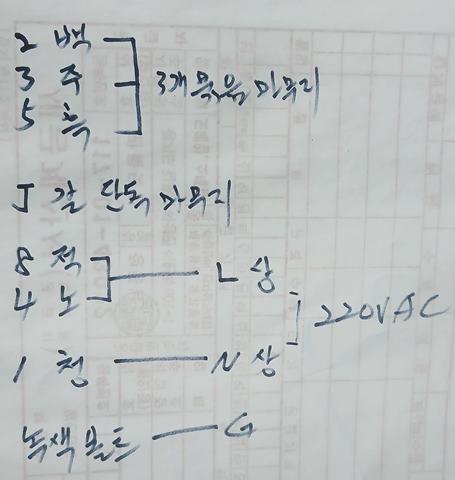 2 백
3 주
5 흑
3개 묶음 마무리
J 갈 단독 마무리
8 적
4 노
L 상
1 청
N 상
220VAC
녹색 볼트 G